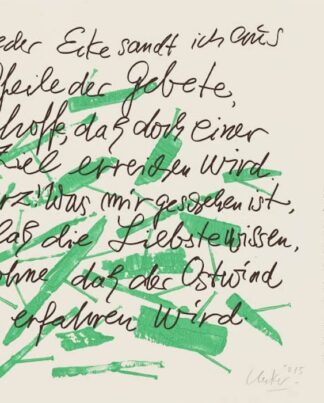 eder Ecke sandt ich aus
Pfeile der Gebete,
hoffe, daß doch einer
Ziel erreichen wird
rz! Was mir geschehen ist,
laß die Liebste wissen,
ohne daß der Ostwind
erfahren wird.
Uecker '015